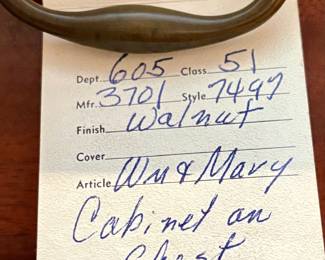 Dept. 605 Class 51
Mfr. 3701 Style 7497
Finish Walnut
Cover
Article Wm & Mary
Cabinet on
Chest